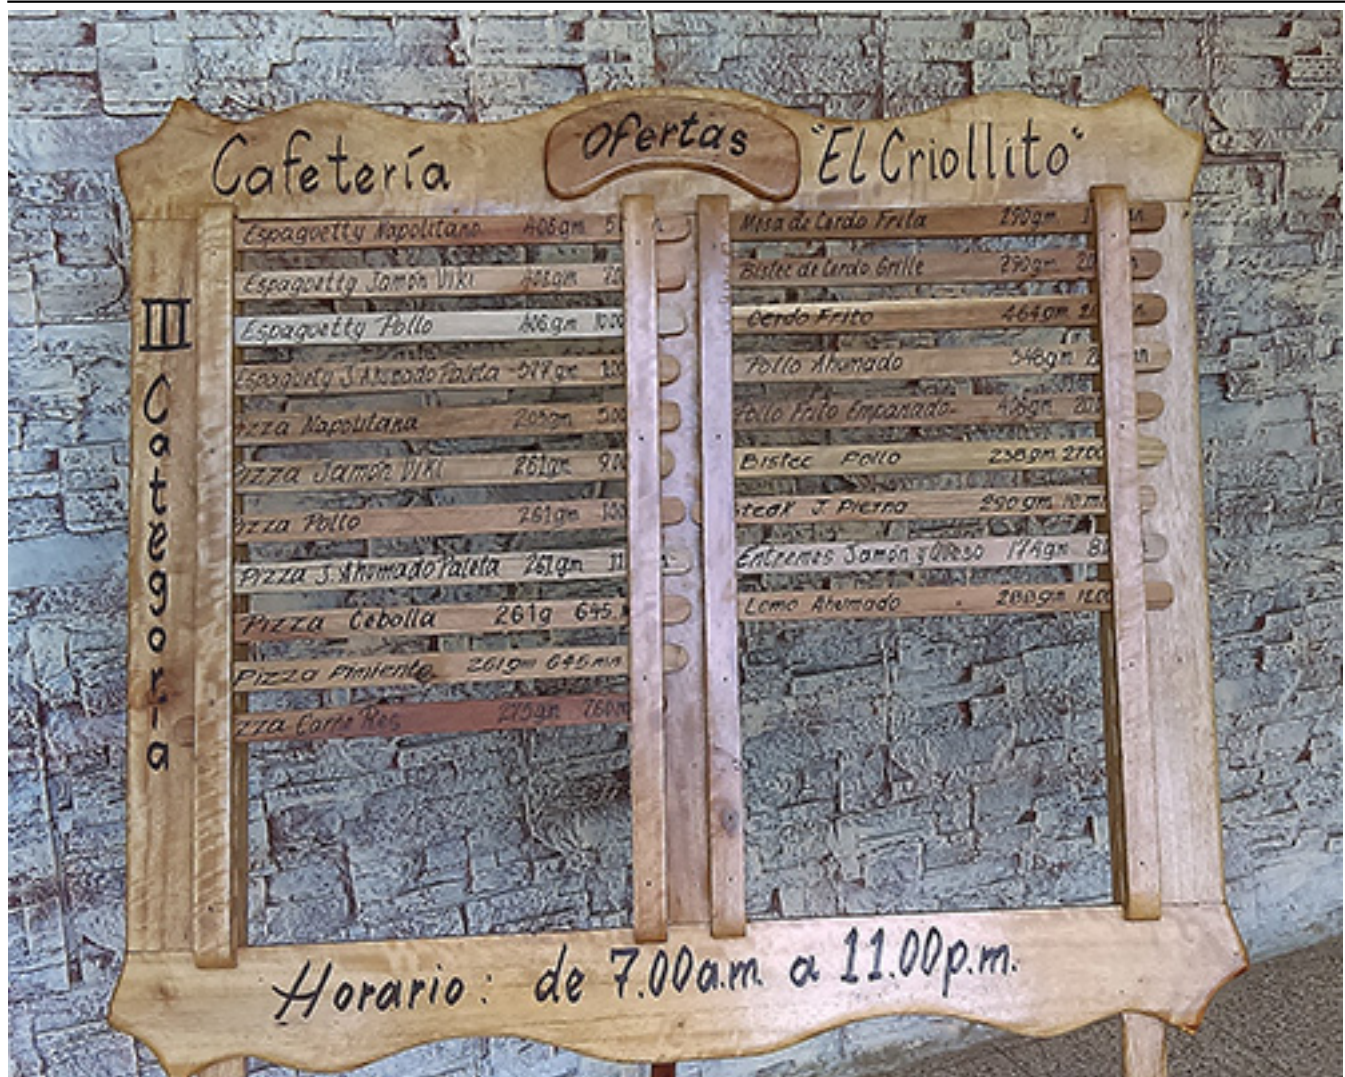 Cafetería
Ofertas
"El Criollito"
III Categoría
Espaguetty Napolitano 406gm
Espaguetty Jamón Viki 406gm
Espaguetty Pollo 406gm
Espaguety J. Ahumado Paleta 577gm
Napolitana
Jamón Viki 261gm
Pollo 261gm
Pizza J. Ahumado Paleta 261gm
Pizza Cebolla 261g 645
Pizza Pimiento 261gm 645mn
Carne Res 275gm
Masa de Cerdo Frita 290gm
Bistec de Cerdo Grille 290gm
Cerdo Frito 464gm
Pollo Ahumado 348gm
Pollo Frito Empanado
Bistec Pollo 238gm
J. Pierna 290gm
Entremes Jamón y Queso 174gm
Lomo Ahumado 288gm
Horario: de 7.00a.m. a 11.00p.m.